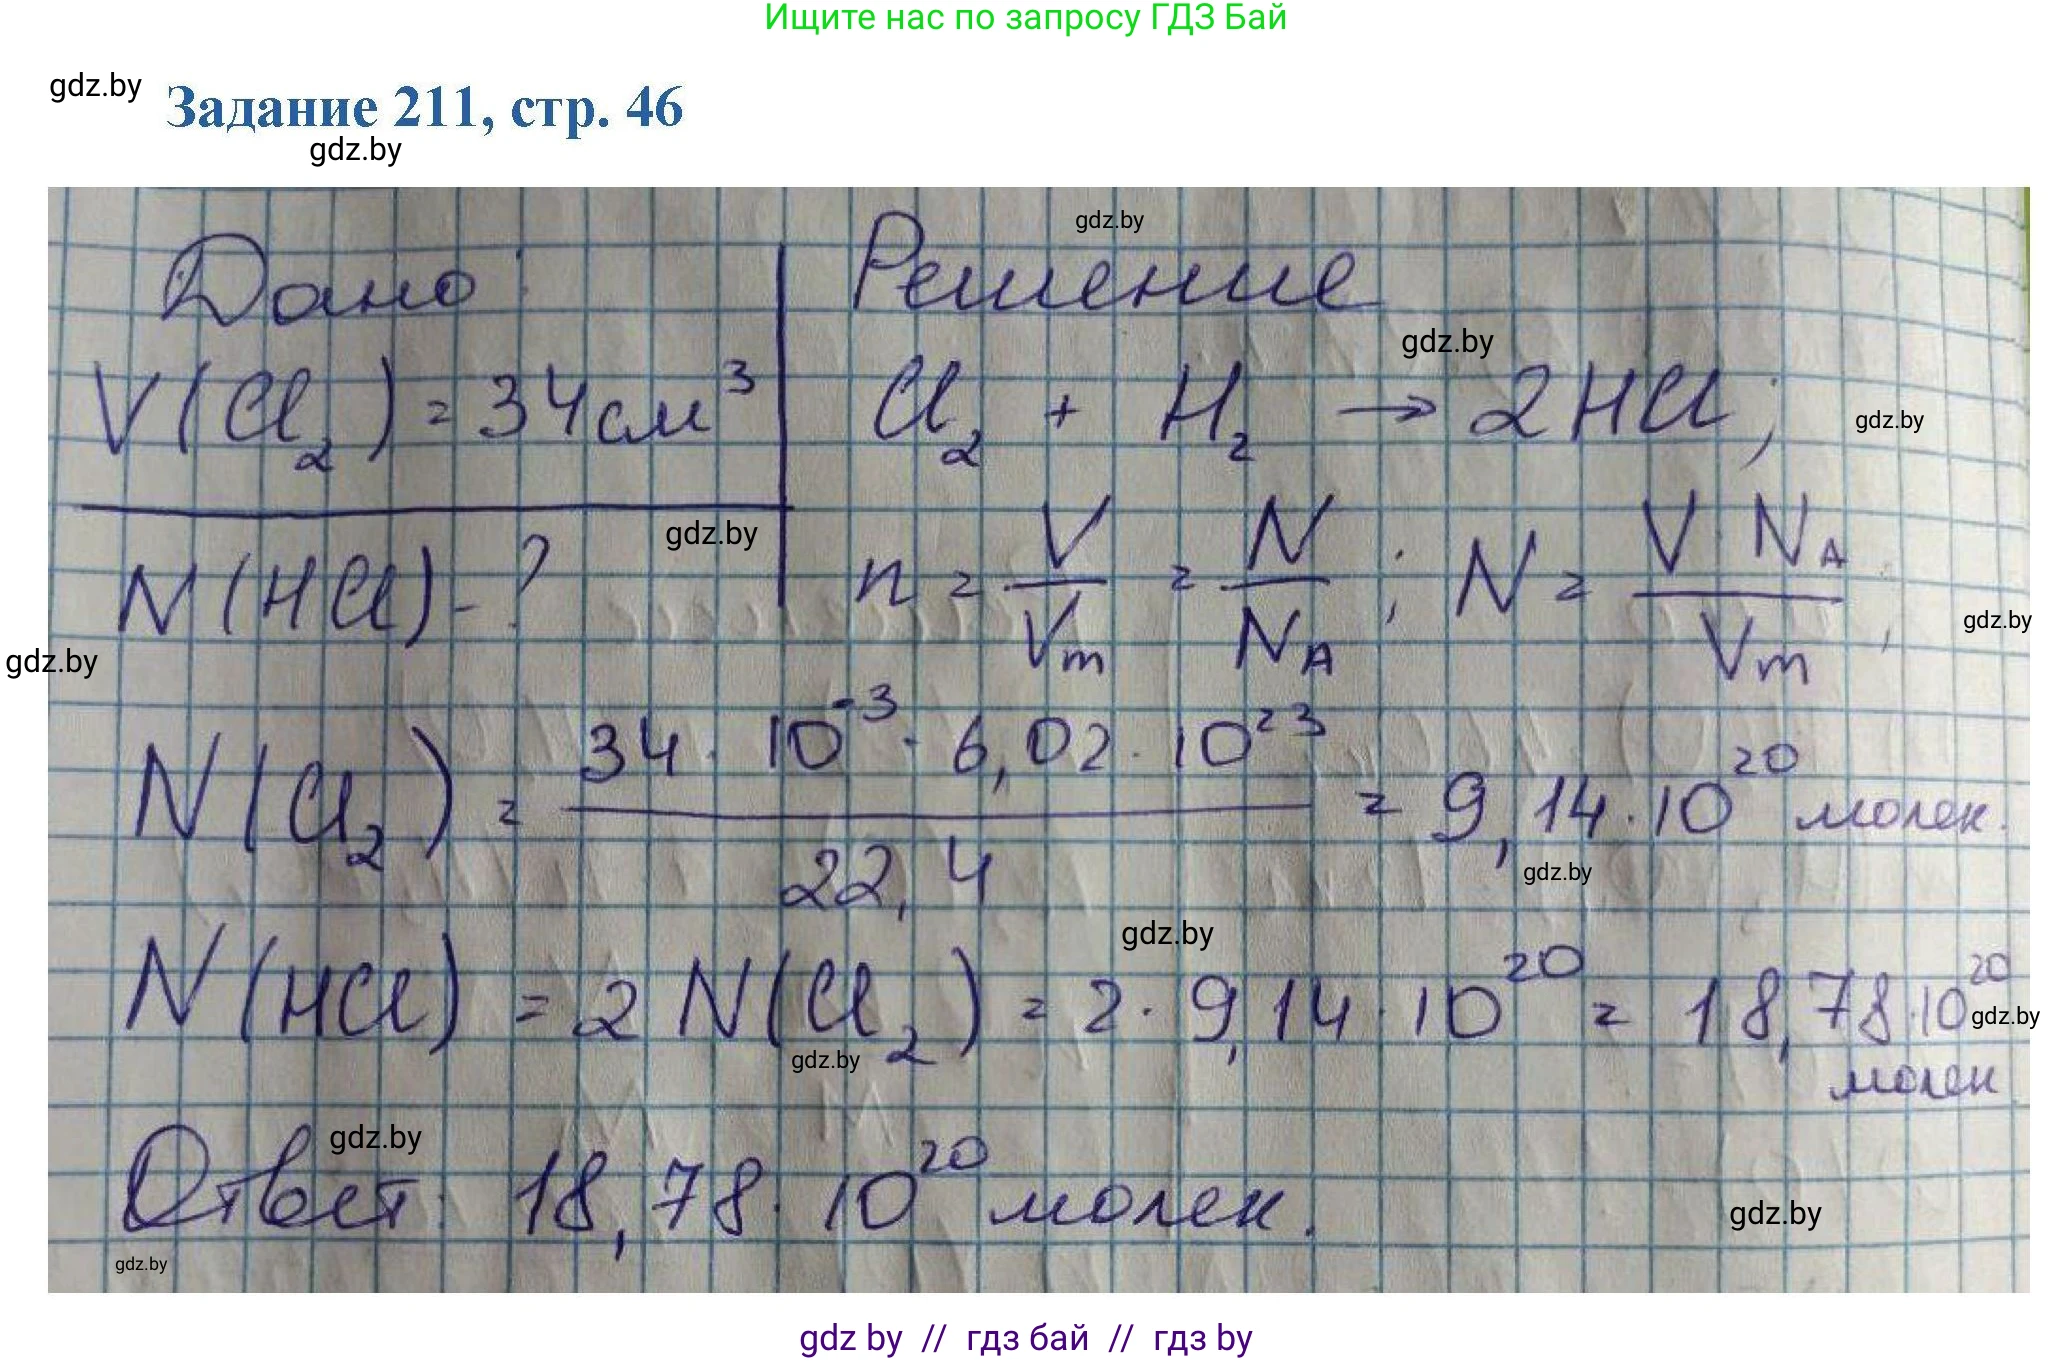 Ищите нас по запросу ГДЗ Бай
gdz.by
Задание 211, стр. 46
gdz.by
gdz.by
Дано:
Решение
gdz.by
V(Cl₂) = 34 см³
Cl₂ + H₂ → 2HCl;
gdz.by
gdz.by
N(HCl) - ?
n = V/Vm = N/N_A; N = V·N_A/Vm;
gdz.by
gdz.by
N(Cl₂) = 34·10⁻³·6,02·10²³/22,4 = 9,14·10²⁰ молек.
gdz.by
gdz.by
N(HCl) = 2N(Cl₂) = 2·9,14·10²⁰ = 18,78·10²⁰
gdz.by
молек
gdz.by
gdz.by
Ответ: 18,78·10²⁰ молек.
gdz.by
gdz.by
gdz by // гдз бай // гдз by